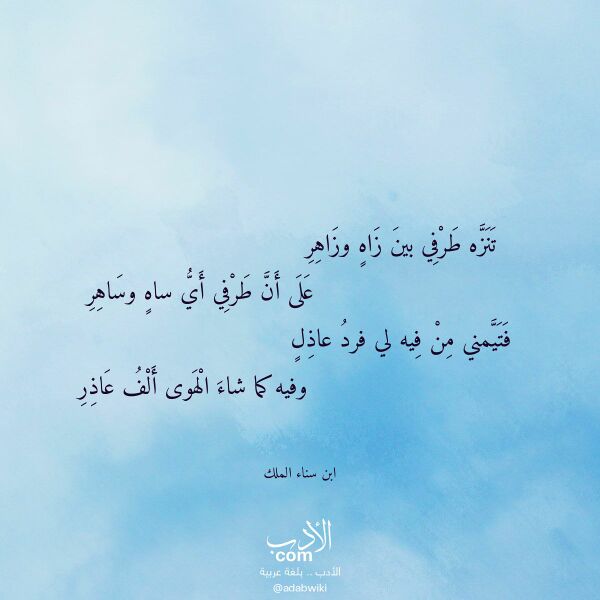 تَنَزَّه طَرْفِي بينَ زَاهٍ وزَاهِرِ
عَلَى أَنَّ طَرْفِي أَيُّ ساهٍ وسَاهِرِ
فَتَيَّمني مِنْ فِيه لي فردُ عاذِلٍ
وفيه كما شاءَ الْهَوى أَلْفُ عَاذِرِ
ابن سناء الملك
الأدب
com
الأدب .. بلغة عربية
@adabwiki